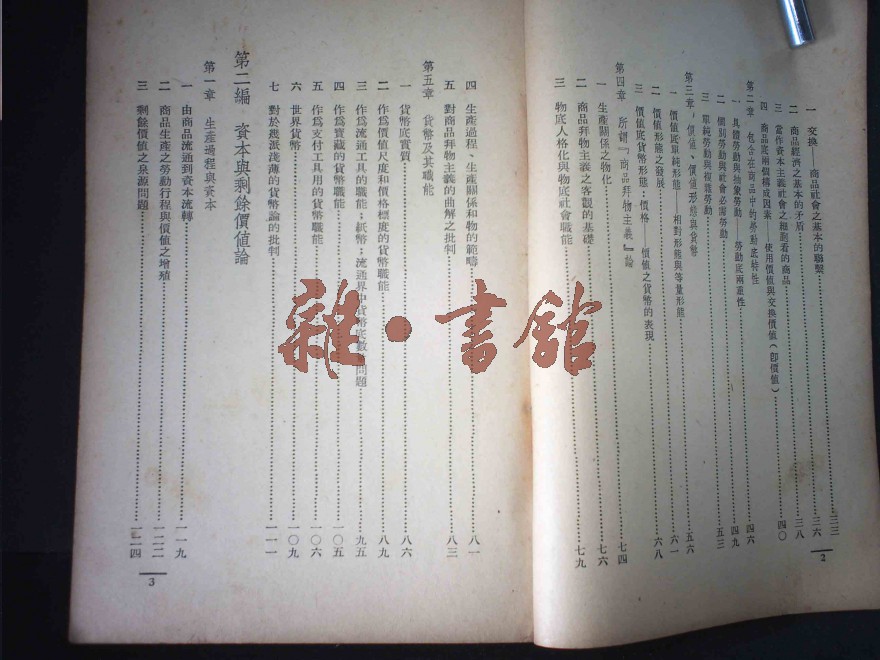 一 交換——商品社會之基本的聯繫……三三
二 商品經濟之基本的矛盾……三六
三 當作資本主義社會之細胞看的商品……三八
四 商品底兩個構成因素——使用價值與交換價值(卽價值)……四〇
第二章 包含在商品中的勞動底特性……四六
一 具體勞動與抽象勞動——勞動底兩重性……四九
二 個別勞動與社會必需勞動……五三
三 單純勞動與複雜勞動
第三章 價值、價值形態與貨幣……五六
一 價值底單純形態——相對形態與等量形態……六一
二 價值形態之發展……六八
三 價值底貨幣形態:價格——價值之貨幣的表現
第四章 所謂『商品拜物主義』論……七四
一 生產關係之物化……七六
二 商品拜物主義之客觀的基礎……七九
三 物底人格化與物底社會職能
2
四 生產過程、生產關係和物的範疇……八一
五 對商品拜物主義的曲解之批判……八三
第五章 貨幣及其職能
一 貨幣底實質……八六
二 作爲價值尺度和價格標度的貨幣職能……八九
三 作爲流通工具的職能;紙幣;流通界中貨幣底數量問題……九五
四 作爲寶藏的貨幣職能……一〇五
五 作爲支付工具用的貨幣職能……一〇六
六 世界貨幣……一〇九
七 對於幾派淺薄的貨幣論的批判……一一一
第二編 資本與剩餘價値論
第一章 生產過程與資本
一 由商品流通到資本流轉……一一九
二 商品生產之勞動行程與價值之增殖……一二二
三 剩餘價值之泉源問題……一二四
3
雜·書館